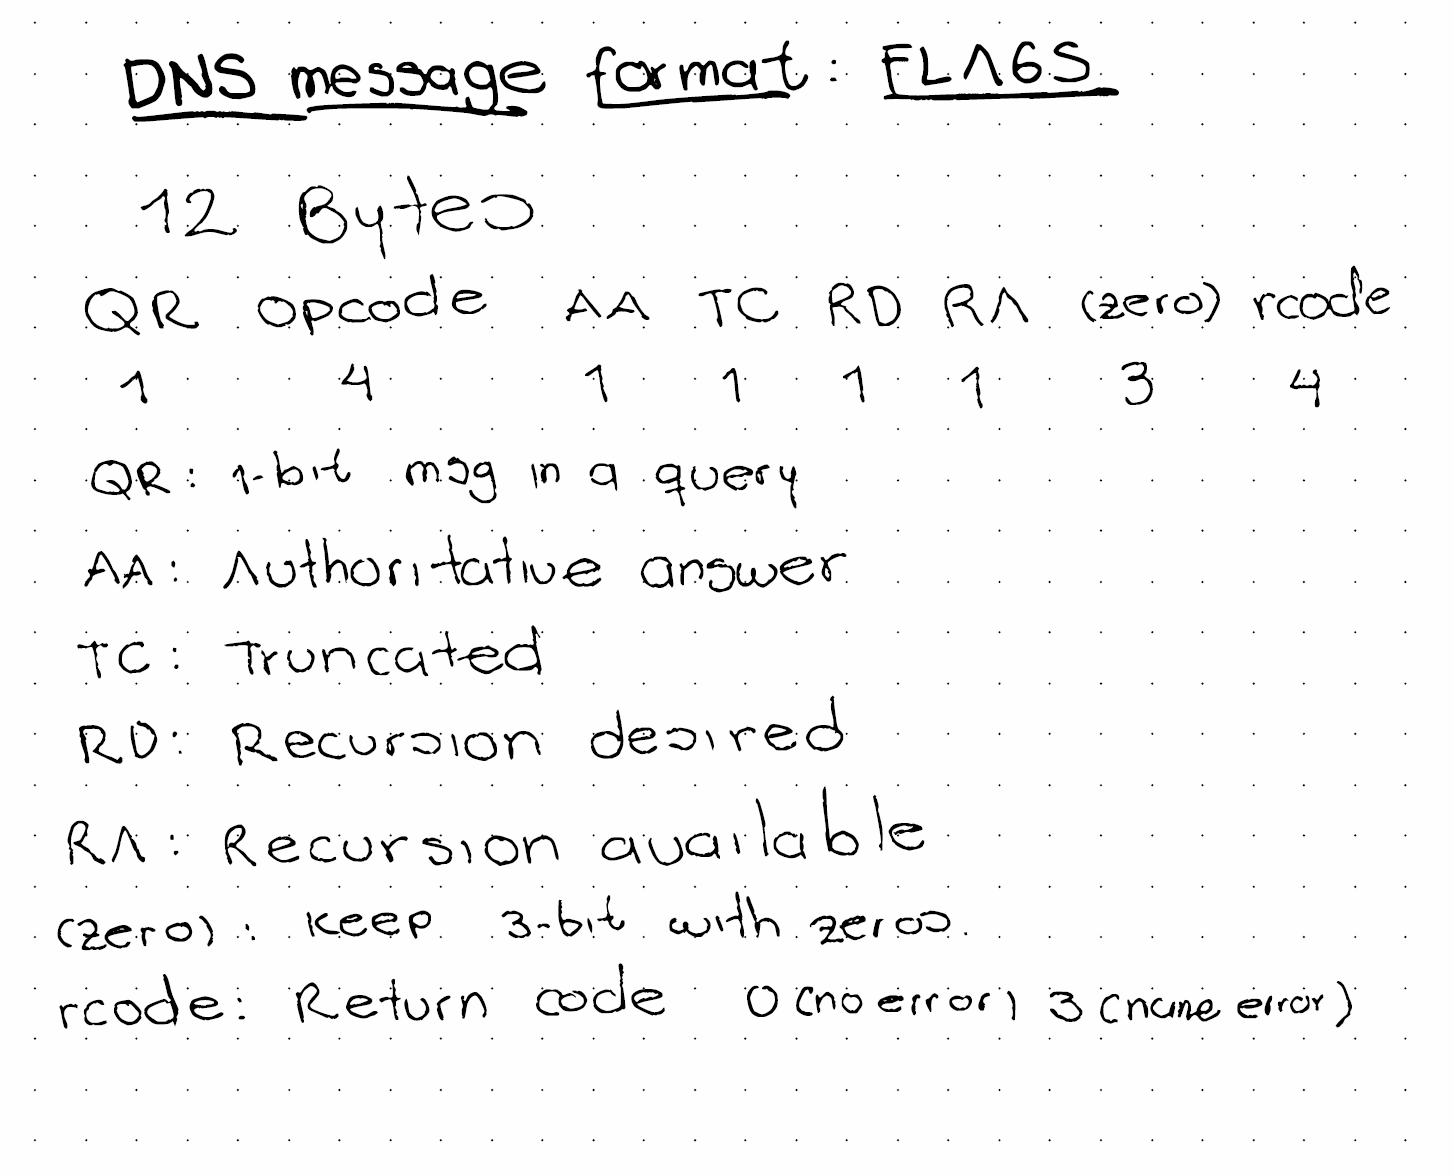 DNS message format: FLAGS
12 Bytes
QR opcode AA TC RD RA (zero) rcode
1 4 1 1 1 1 3 4
QR: 1-bit msg in a query
AA: Authoritative answer
TC: Truncated
RD: Recursion desired
RA: Recursion available
(zero): Keep 3-bit with zeros.
rcode: Return code 0 (no error) 3 (name error)